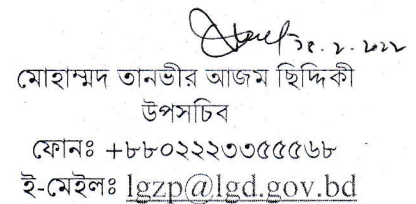 ২৫.২.২০২২
মোহাম্মদ তানভীর আজম ছিদ্দিকী
উপসচিব
ফোনঃ +৮৮০২২২৩৩৫৫৫৬৮
ই-মেইলঃ lgzp@lgd.gov.bd